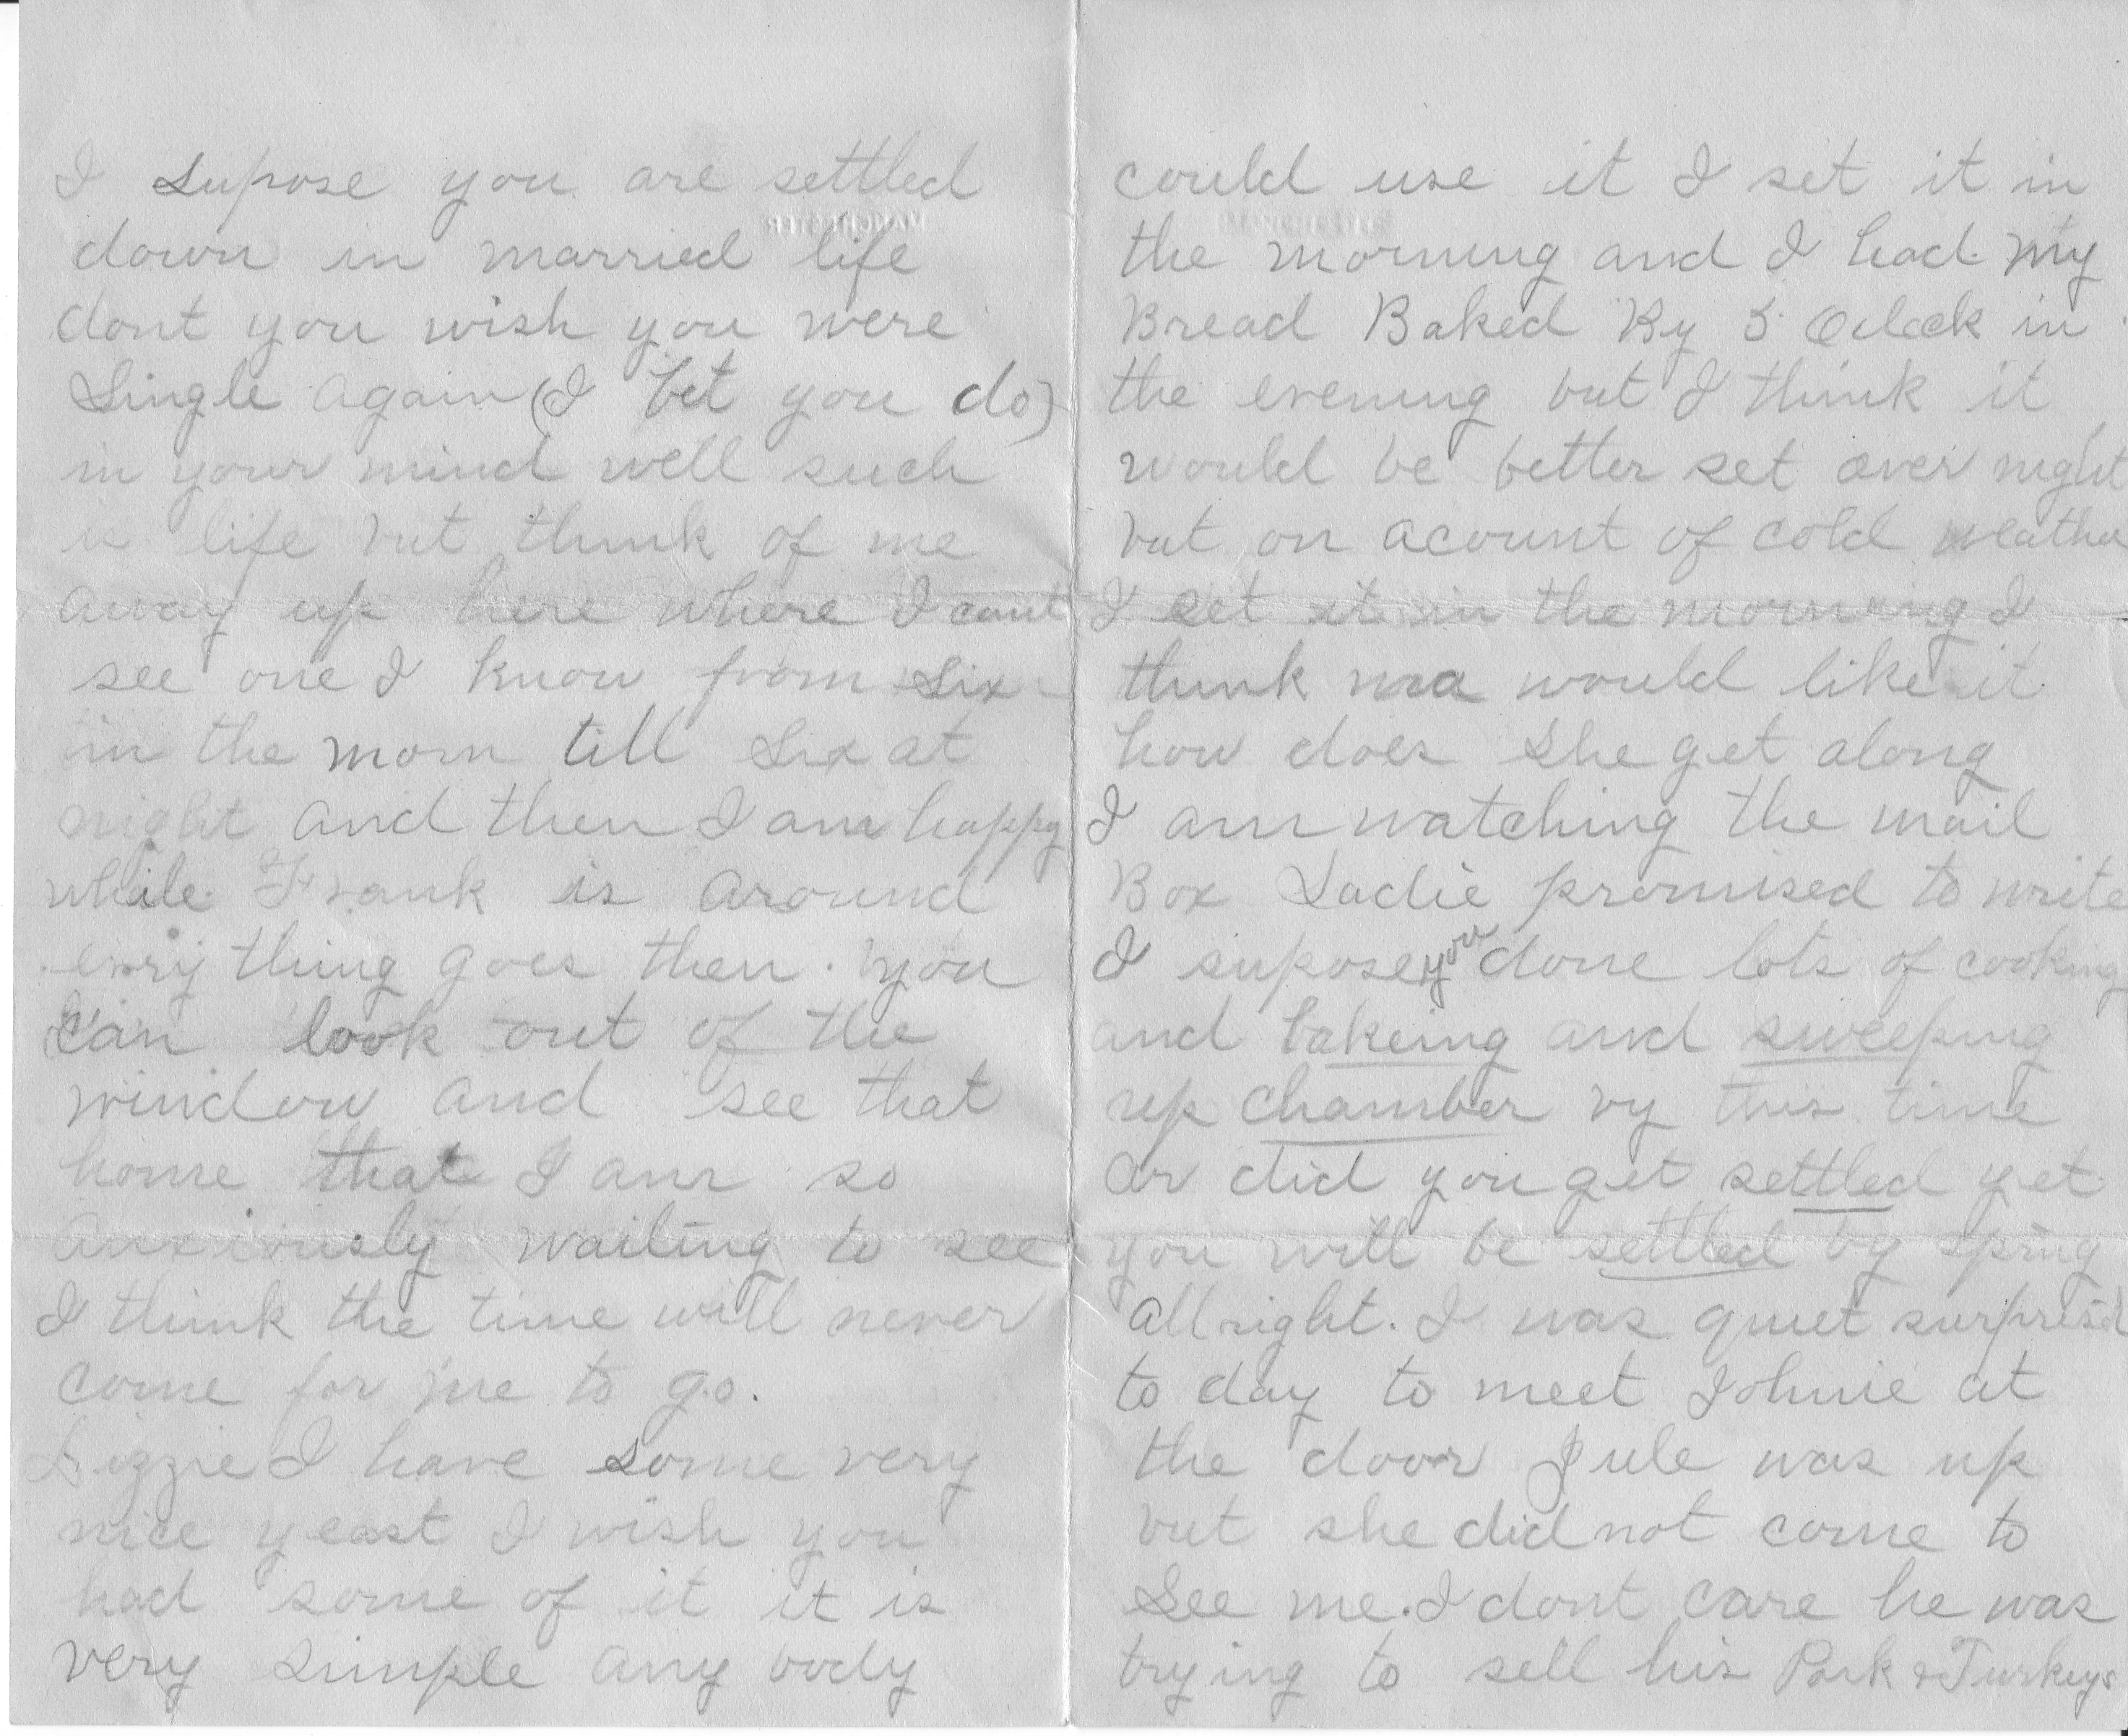 I supose you are settled
down in married life
dont you wish you were
Single again (I bet you do)
in your mind well such
is life but think of me
away up here where I cant
see one I know from Six
in the morn till Six at
night and then I am happy
while Frank is around
evry thing goes then. you
can look out of the
window and see that
home that I am so
anxiously waiting to see
I think the time will never
come for me to go.
Lizzie I have some very
nice yeast I wish you
had some of it it is
very simple any body
could use it I set it in
the morning and I had my
Bread Baked By 5 Oclock in
the evening but I think it
would be better set over night
but on acount of cold weather
I set it in the morning I
think ma would like it
how does she get along
I am watching the mail
Box Sadie promised to write
I supose you done lots of cooking
and bakeing and sweeping
up chamber by this time
or did you get settled yet
you will be settled by spring
allright. I was quiet surprisd
to day to meet Johnie at
the door Jule was up
but she did not come to
See me. I dont care he was
trying to sell his Pork & Turkeys